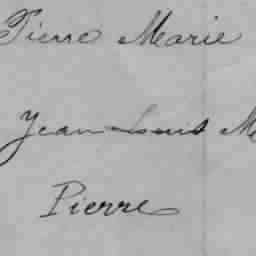 Pierre Marie
Jean Louis M
Pierre